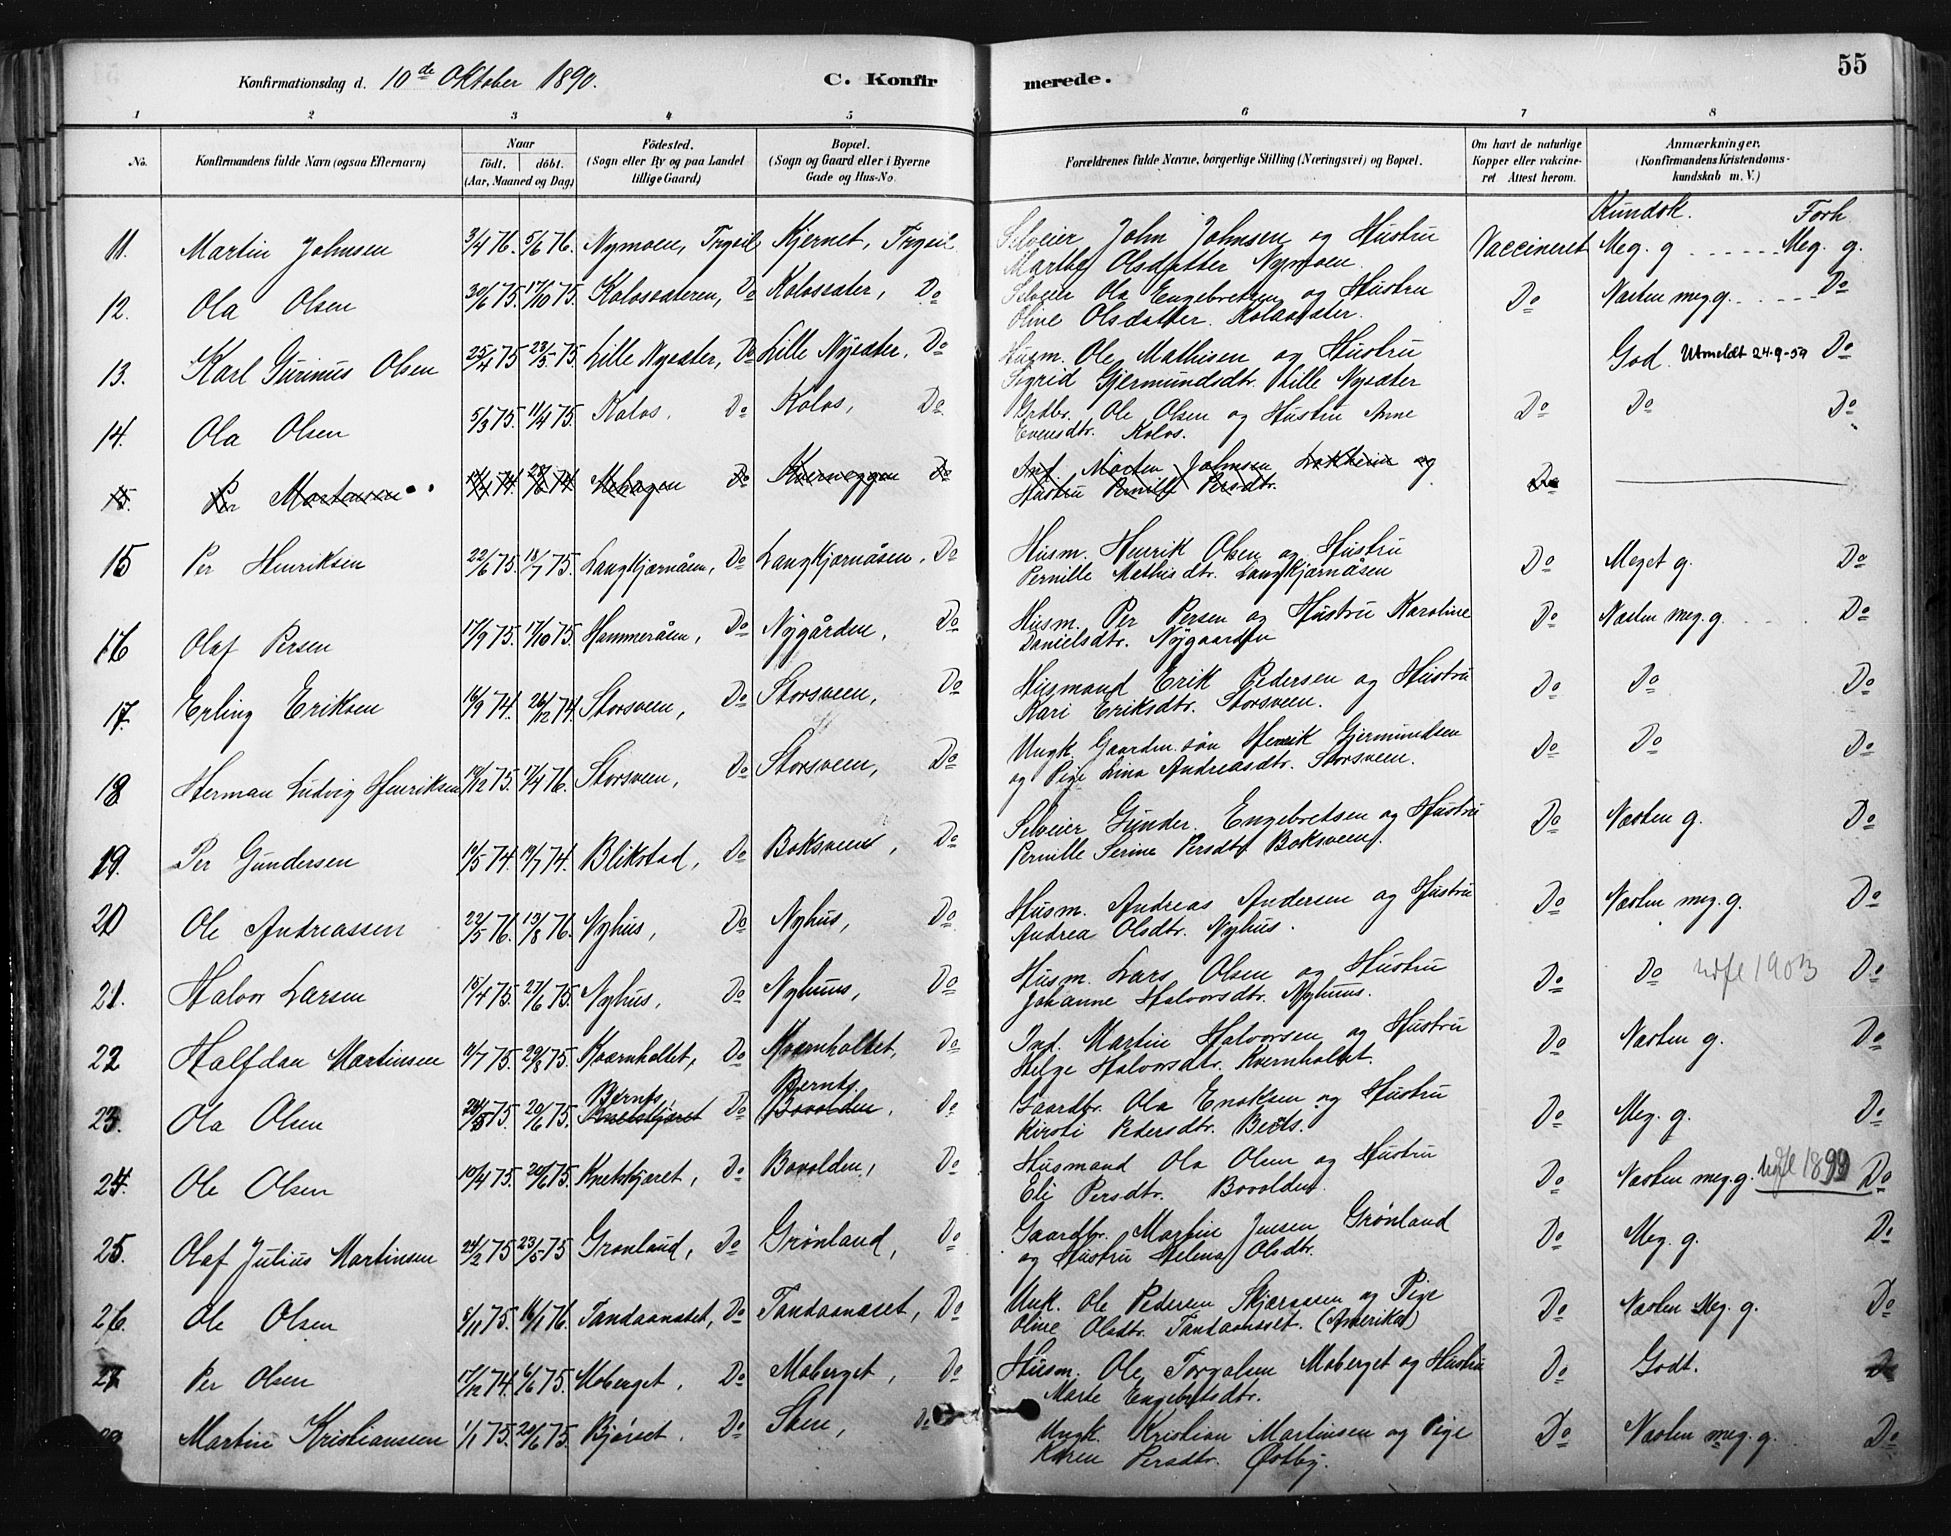 Konfirmationsdag d. 10de Oktober 1890. C. Konfirmerede. 55
1 2 3 4 5 6 7 8
No. Konfirmandens fulde Navn (ogsaa Efternavn) Naar födt. döbt. (Aar, Maaned og Dag) Födested. (Sogn eller By og paa Landet tillige Gaard) Bopæl. (Sogn og Gaard eller i Byerne Gade og Hus-No. Forældrenes fulde Navne, borgerlige Stilling (Næringsvei) og Bopæl. Om havt de naturlige Kopper eller vakcineret Attest herom. Anmærkninger. (Konfirmandens Kristendomskundskab m. V.)
Kundsk. Forh.
11. Martin Johnsen 3/4 76. 5/6 76. Nymoen, Trysil Kjernet, Trysil Selveier John Johnsen og Hustru Vaccineret Meg. g. Meg. g.
Marthe Olsdatter Nymoen
12. Ola Olsen 30/6 75. 17/10 75. Kolossæteren, Do Kolossæter, Do Selveier Ola Engebretsen og Hustru Do Næsten meg. g. Do
Oline Olsdatter. Kolossæter.
13. Karl Gurinus Olsen 25/4 75 23/5 75. Lille Nysæter, Do Lille Nysæter. Do Husm. Ole Mathisen og Hustru God. Utmeldt 24-9-59 Do
Sigrid Gjermundsdtr. Lille Nysæter
14. Ola Olsen 5/3 75. 11/4 75. Kolos. Do Kolos, Do Grdbr. Ole Olsen og Hustru Anne Do Do Do
Evensdtr. Kolos.
15. Per Mortensen Do Kverneggen Do Ind. Morten Johnsen og Do
Hustru Pernille Persdtr.
15 Per Henriksen 22/6 75. 18/7 75. Langkjærnåsen, Do Langkjærnåsen, Do Husm. Henrik Olsen og Hustru Do Meget g. Do
Pernille Mathisdtr. Langkjærnåsen
16 Olaf Persen 17/9 75. 17/10 75. Hammeråsen, Do Nygården, Do Husm. Per Persen og Hustru Karoline Do Næsten meg. g. Do
Danielsdtr. Nygaarden
17. Erling Eriksen 16/9 74. 26/12 74. Storsveen, Do Storsveen, Do Husmand Erik Pedersen og Hustru Do Do Do
Kari Eriksdtr. Storsveen.
18 Herman Ludvig Henriksen 75. 17/4 76. Storsveen, Do Storsveen, Do Ungk. Gaardm.søn Henrik Gjermundsen Do Do Do
og Pige Lina Andreasdtr. Storsveen.
19. Per Gundersen 74. 74. Blikstad, Do Boksveen, Do Selveier Gunder Engebretsen og Hustru Do Næsten g. Do
Pernille Serine Persdtr. Boksveen.
20 Ole Andreassen 22/5 76. 13/8 76. Nyhus, Do Nyhus, Do Husm. Andreas Andersen og Hustru Do Næsten meg. g. Do
Andrea Olsdtr. Nyhus.
21. Halvor Larsen 15/4 75. 27/6 75. Nyhus, Do Nyhuus, Do Husm. Lars Olsen og Hustru Do Do Udfl 1903 Do
Johanne Halvorsdtr. Nyhuus.
22 Halfdan Martinsen 75. 29/8 75. Kværnholtet, Do Kværnholtet, Do Ind. Martin Halvorsen og Hustru Do Næsten g. Do
Helge Halvorsdtr. Kvernholtet.
23. Ola Olsen 75. 20/6 75. Bernts, Knetskjæret Do Bernts. Bovolden. Do Gaardbr. Ola Enoksen og Hustru Do Meg. g. Do
Kirsti Pedersdtr.
24. Ole Olsen 19/4 75. 20/6 75. Knetskjæret, Do Bovolden, Do Husmand Ola Olsen og Hustru Do Næsten meg. g. Udfl 1899 Do
Eli Persdtr. Bovolden.
25. Olaf Julius Martinsen 24/2 75 23/5 75 Grønland, Do Grønland, Do Gaardbr. Martin Jensen Grønland Do Meg. g. Do
og Hustru Helena Olsdtr.
26. Ole Olsen 8/11 75. 16/1 76. Tandaanæset, Do Tandaanæset, Do Unk. Ole Pedersen Skjæraasen og Pige Do Næsten Meg. g. Do
Oline Olsdtr. Tandaanæset. (Amerika)
27 Per Olsen 17/12 74. 6/6 75. Moberget, Do Moberget, Do Husm. Ole Torgalsen Moberget og Hustru Do Godt. Do
Marte Engebretsdtr.
Martin Kristiansen 1/1 75. 20/6 75. Bjørset. Do Sten, Do Ungk. Kristian Martinsen og Pige Do Næsten meg. g. Do
Karen Persdtr. Østby.